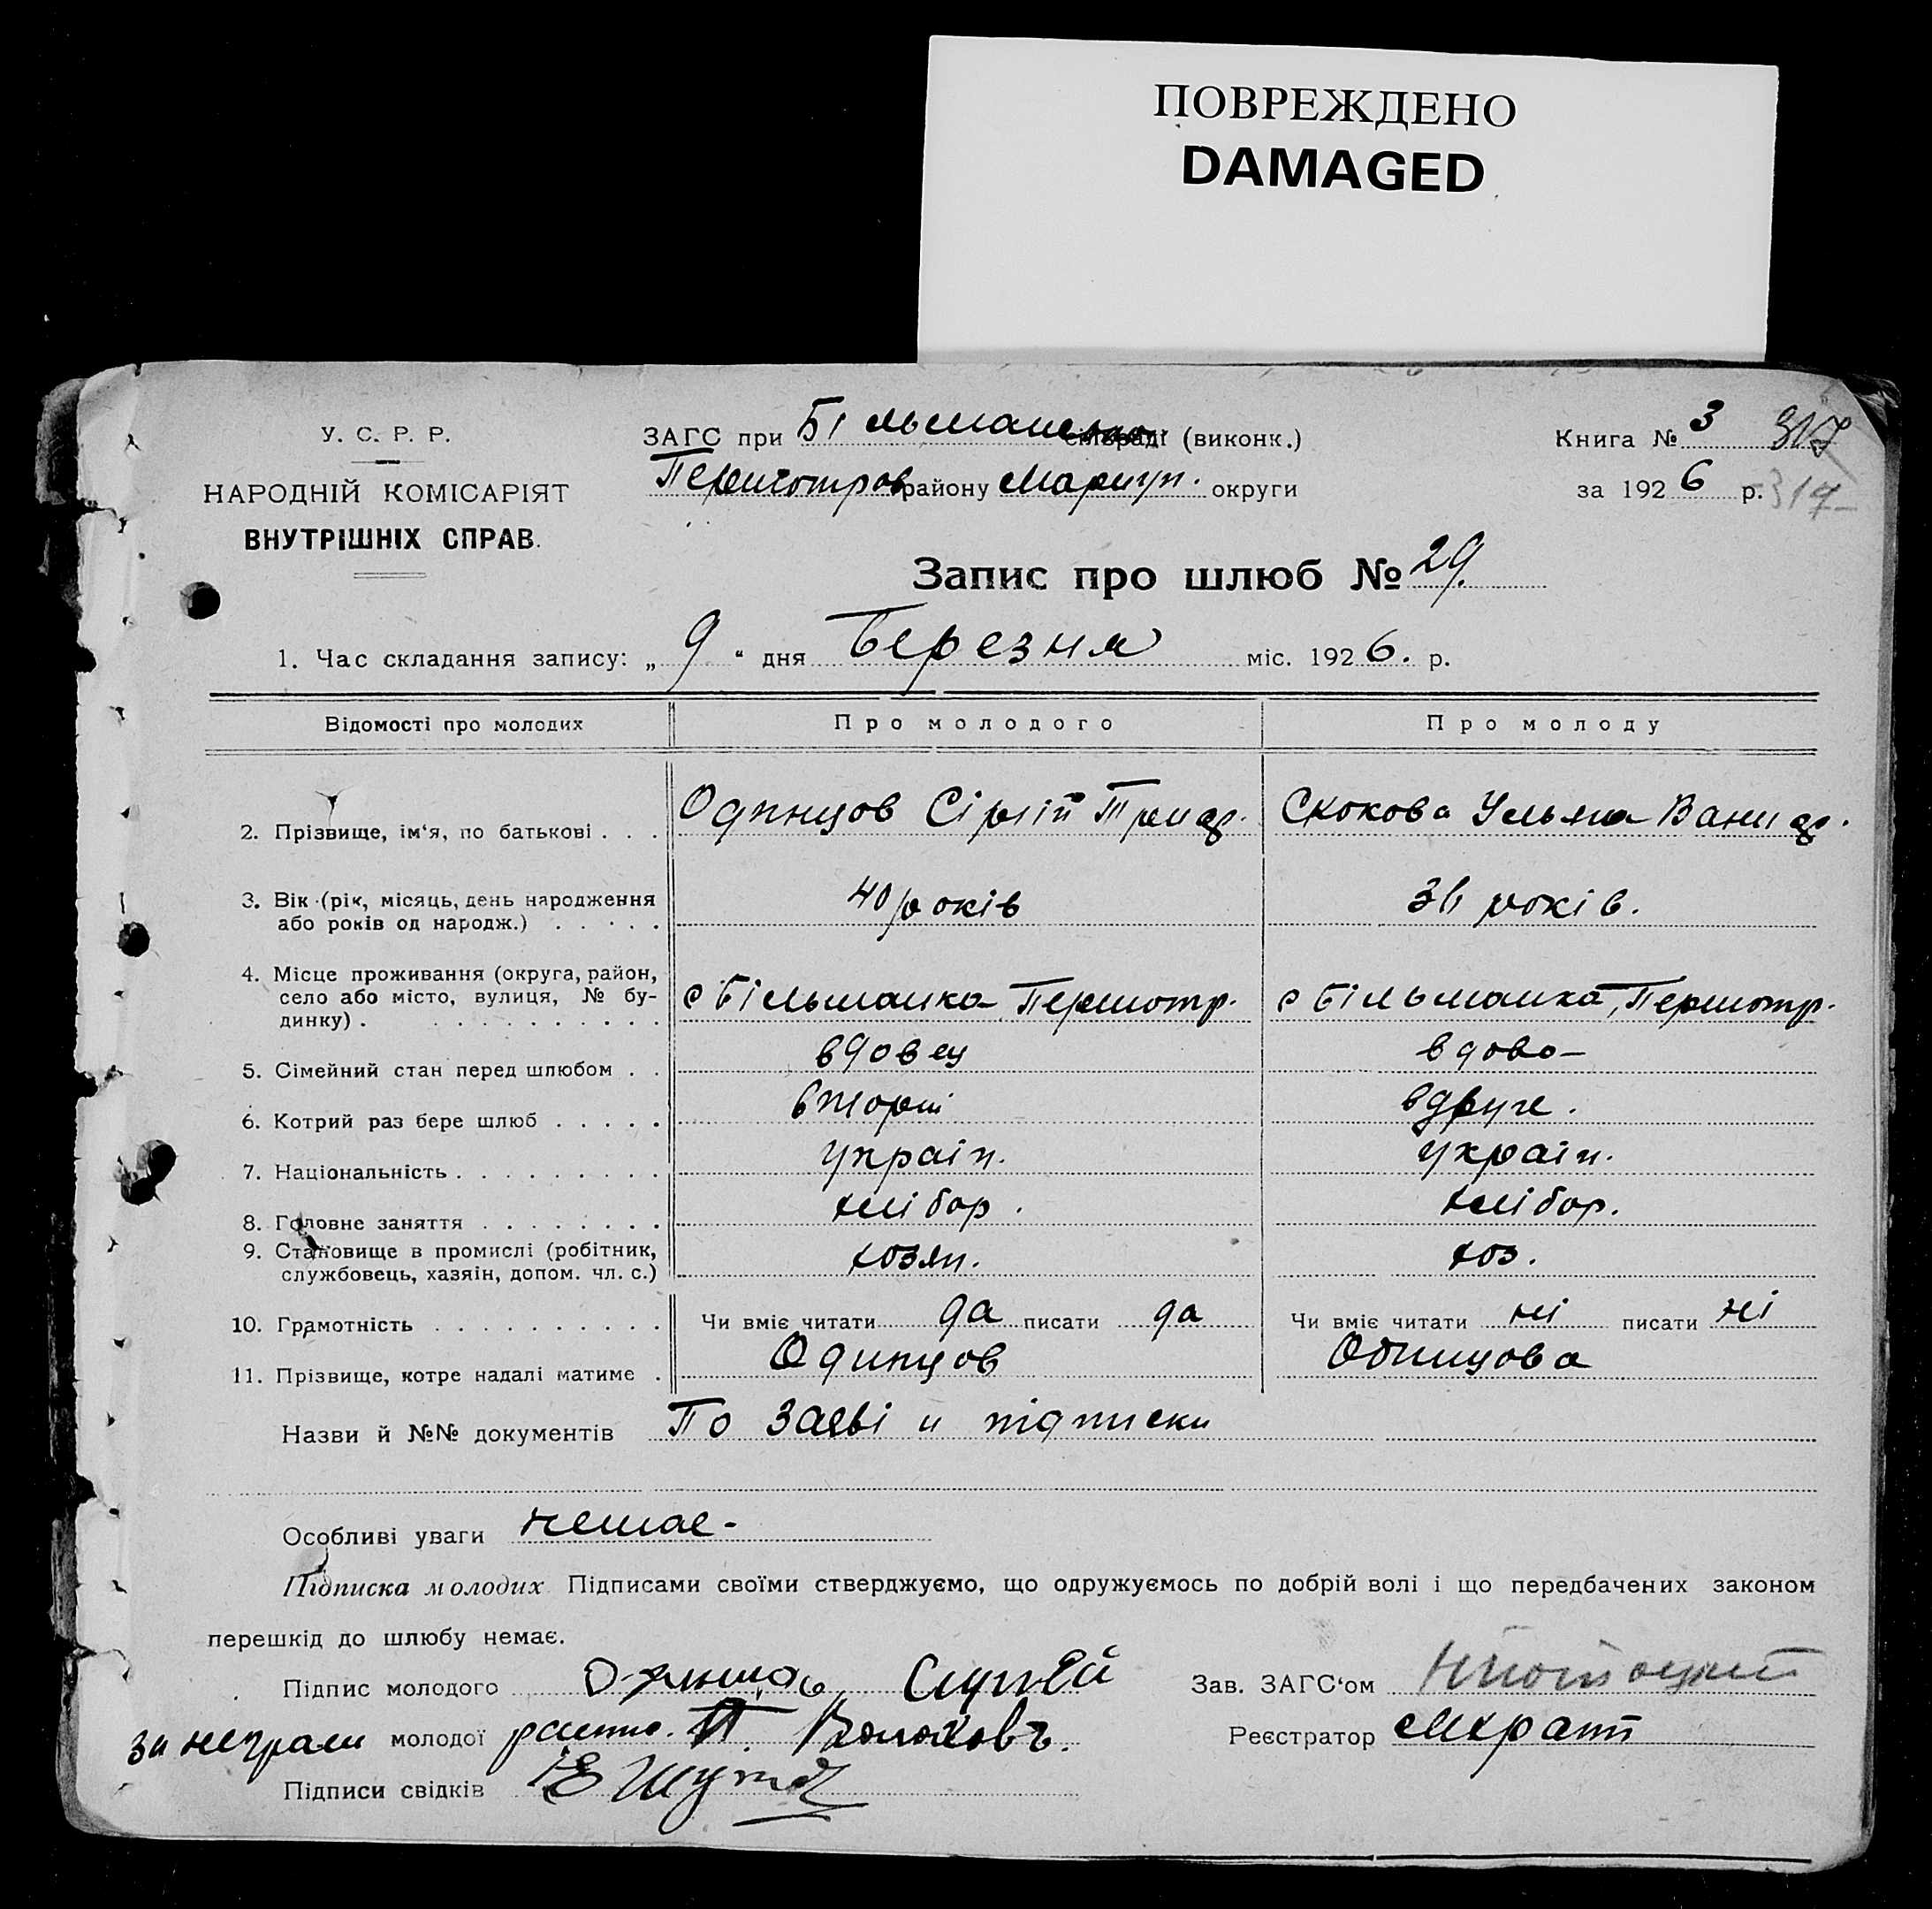 ПОВРЕЖДЕНО
DAMAGED
У. С. Р. Р.
НАРОДНІЙ КОМІСАРІЯТ
ВНУТРІШНІХ СПРАВ.
ЗАГС при (виконк.)
району Маріуп. округи
Книга № 3 317
за 1926 р. 317
Запис про шлюб № 29.
1. Час складання запису: „ 9 “ дня Березня міс. 1926. р.
Відомості про молодих Про молодого Про молоду
2. Прізвище, ім‘я, по батькові . . . Одинцов Сіргій Скокова Ульяна
3. Вік (рік, місяць, день народження
або років од народж.) . . . . . 40 років 36 років.
4. Місце проживання (округа, район,
село або місто, вулиця, № бу-
динку) . . . . . . . . . . . с Більманка Першотр. с Більманка, Першотр.
5. Сімейний стан перед шлюбом . . вдовец вдова
6. Котрий раз бере шлюб . . . . . вдруге.
7. Національність . . . . . . . . . україн. україн.
8. Головне заняття . . . . . . . . хлібор. хлібор.
9. Становище в промислі (робітник,
службовець, хазяін, допом. чл. с.) хозяи. хоз.
10. Грамотність . . . . . . . . . . Чи вміє читати да писати да Чи вміє читати ні писати ні
11. Прізвище, котре надалі матиме . Одинцов Одинцова
Назви й №№ документів По заяві и підписки
Особливі уваги немає-
Підписка молодих Підписами своїми стверджуємо, що одружуємось по добрій волі і що передбачених законом
перешкід до шлюбу немає.
Підпис молодого Зав. ЗАГС‘ом
за неграм молодої П. Волоховъ. Реєстратор
Підписи свідків